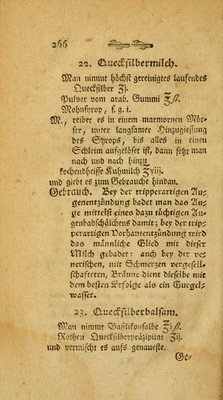 266
22. Quecksilbermilch.
Man nimmt höchst gereinigtes laufendes
Quecksilber ʒj.
Pulver vom arab. Gummi ʒß.
Mohnsyrop, s. g. i.
M., reiber es in einem marmornen Mör-
ser, unter langsamer Hinzugießung
des Syrops, bis alles in einen
Schleim aufgelößet ist, dann setzt man
nach und nach hinzu
kochendheisse Kuhmilch ℥viij.
und giebt es zum Gebrauche hindan.
Gebrauch. Bey der tripperartigen Au-
genentzündung badet man das Au-
ge mittelst eines dazu tüchtigen Au-
genbadschälchens damit; bey der trip-
perartigen Vorhautentzündung wird
das männliche Glied mit dieser
Milch gebadet: auch bey der ve-
nerischen, mit Schmerzen vergesell-
schafteten, Bräune dient dieselbe mit
dem besten Erfolge als ein Gurgel-
wasser.
23. Quecksilberbalsam.
Man nimmt Basilikonsalbe ℥iß.
Rothen Quecksilberpräzipitat ʒij.
und vermischt es aufs genaueste.
Ge-